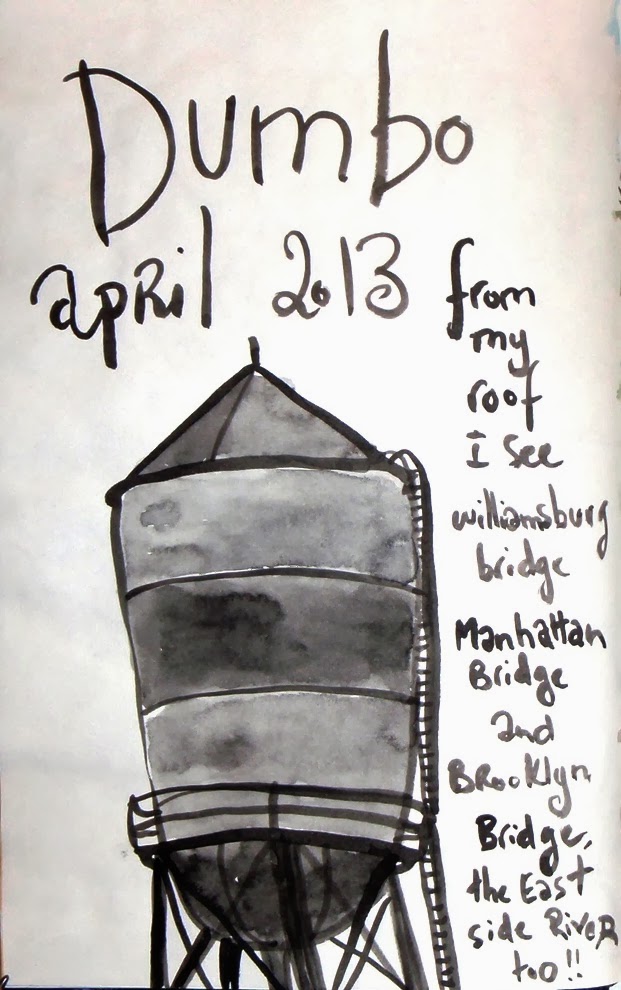 Dumbo
april 2013
from
my
roof
I see
williamsburg
bridge
Manhattan
Bridge
and
Brooklyn
Bridge,
the East
side River
too!!